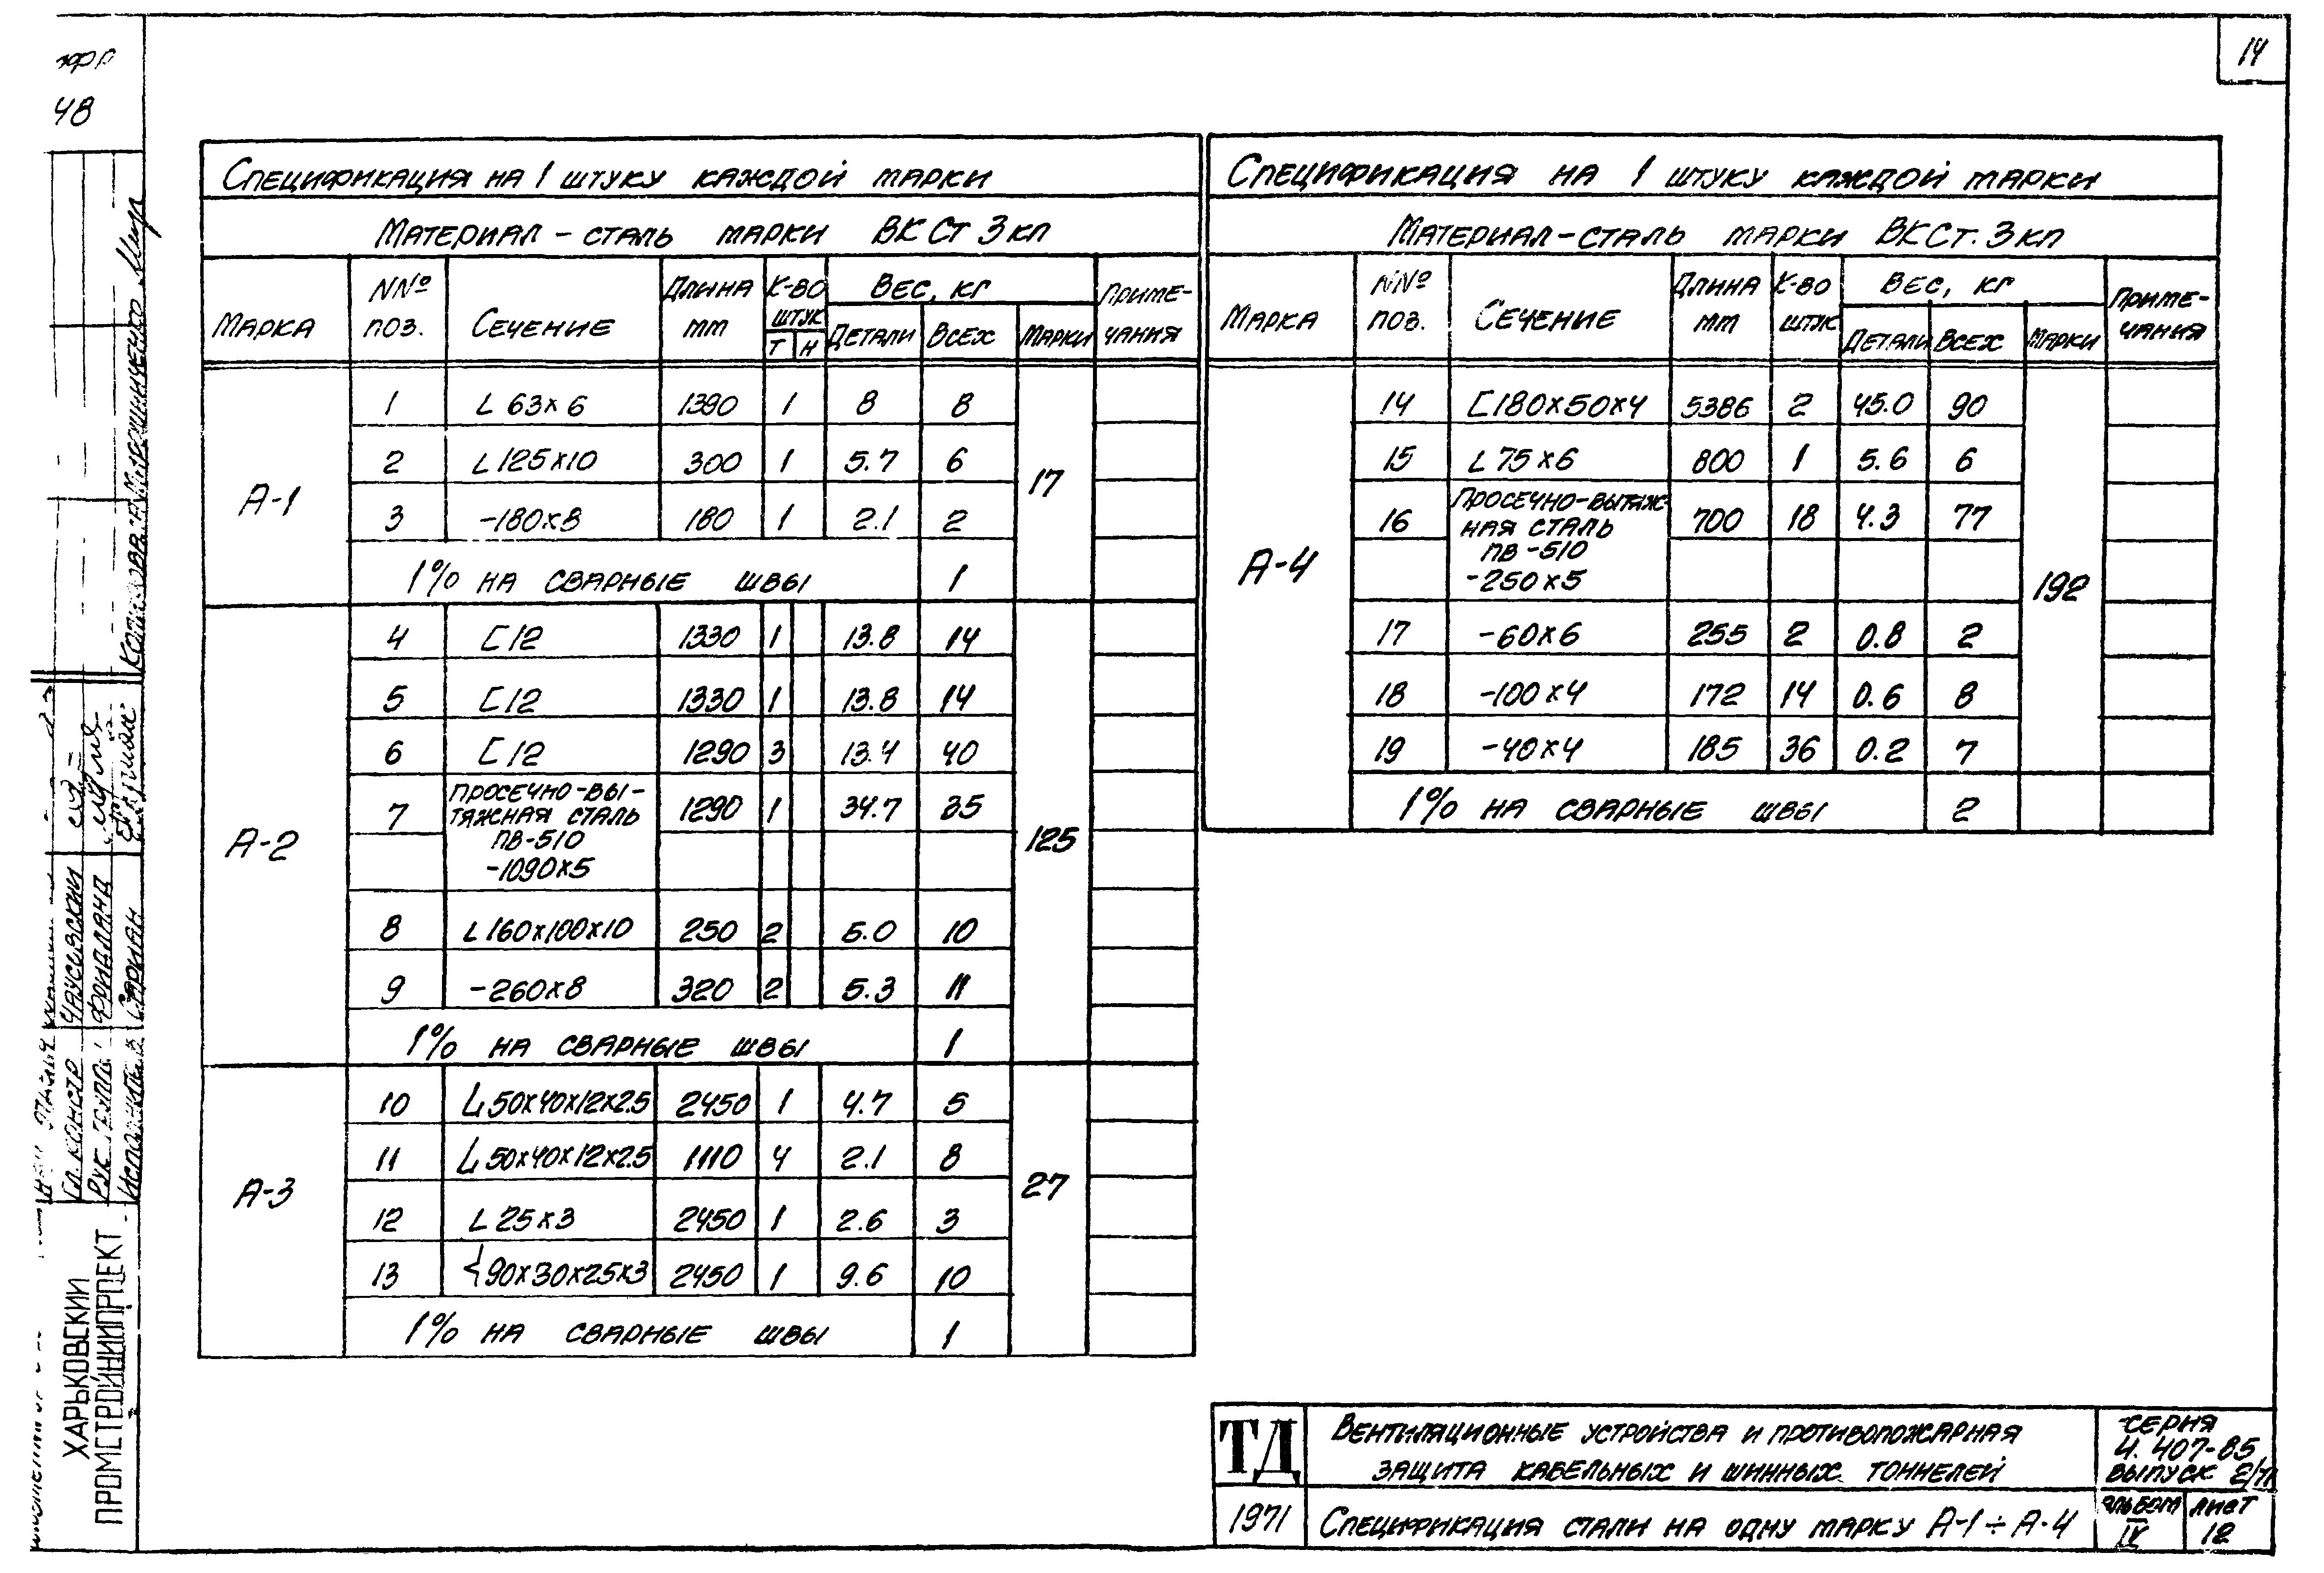 14
48
Спецификация на 1 штуку каждой марки
Материал – сталь марки ВК Ст 3кп
Марка NNº поз. Сечение Длина мм К-во штук Т Н Вес, кг Детали Всех Марки Приме-чания
А-1
1 L 63×6 1390 1 8 8
2 L 125×10 300 1 5.7 6
17
3 -180×8 180 1 2.1 2
1% на сварные швы 1
А-2
4 [ 12 1330 1 13.8 14
5 [ 12 1330 1 13.8 14
6 [ 12 1290 3 13.4 40
7 Просечно-вы-
тяжная сталь 1290 1 34.7 35
ПВ-510
-1090×5
125
8 L 160×100×10 250 2 5.0 10
9 -260×8 320 2 5.3 11
1% на сварные швы 1
А-3
10 L 50×40×12×2.5 2450 1 4.7 5
11 L 50×40×12×2.5 1110 4 2.1 8
27
12 L 25×3 2450 1 2.6 3
13 90×30×25×3 2450 1 9.6 10
1% на сварные швы 1
Спецификация на 1 штуку каждой марки
Материал-сталь марки ВКСт.3кп
Марка NNº поз. Сечение Длина мм К-во штук Вес, кг Детали Всех Марки Приме-чания
А-4
14 [180×50×4 5386 2 45.0 90
15 L 75×6 800 1 5.6 6
16 Просечно-вытяж-
ная сталь 700 18 4.3 77
ПВ-510
-250×5
192
17 -60×6 255 2 0.8 2
18 -100×4 172 14 0.6 8
19 -40×4 185 36 0.2 7
1% на сварные швы 2
ТД
Вентиляционные устройства и противопожарная
защита кабельных и шинных тоннелей
Серия
4.407-85
Выпуск 2/71
1971
Спецификация стали на одну марку А-1÷А-4
Альбом
IX
Лист
12
Харьковский
Промстройниипроект
Гл. констр Чаусовский
Рук. группы Фридланд